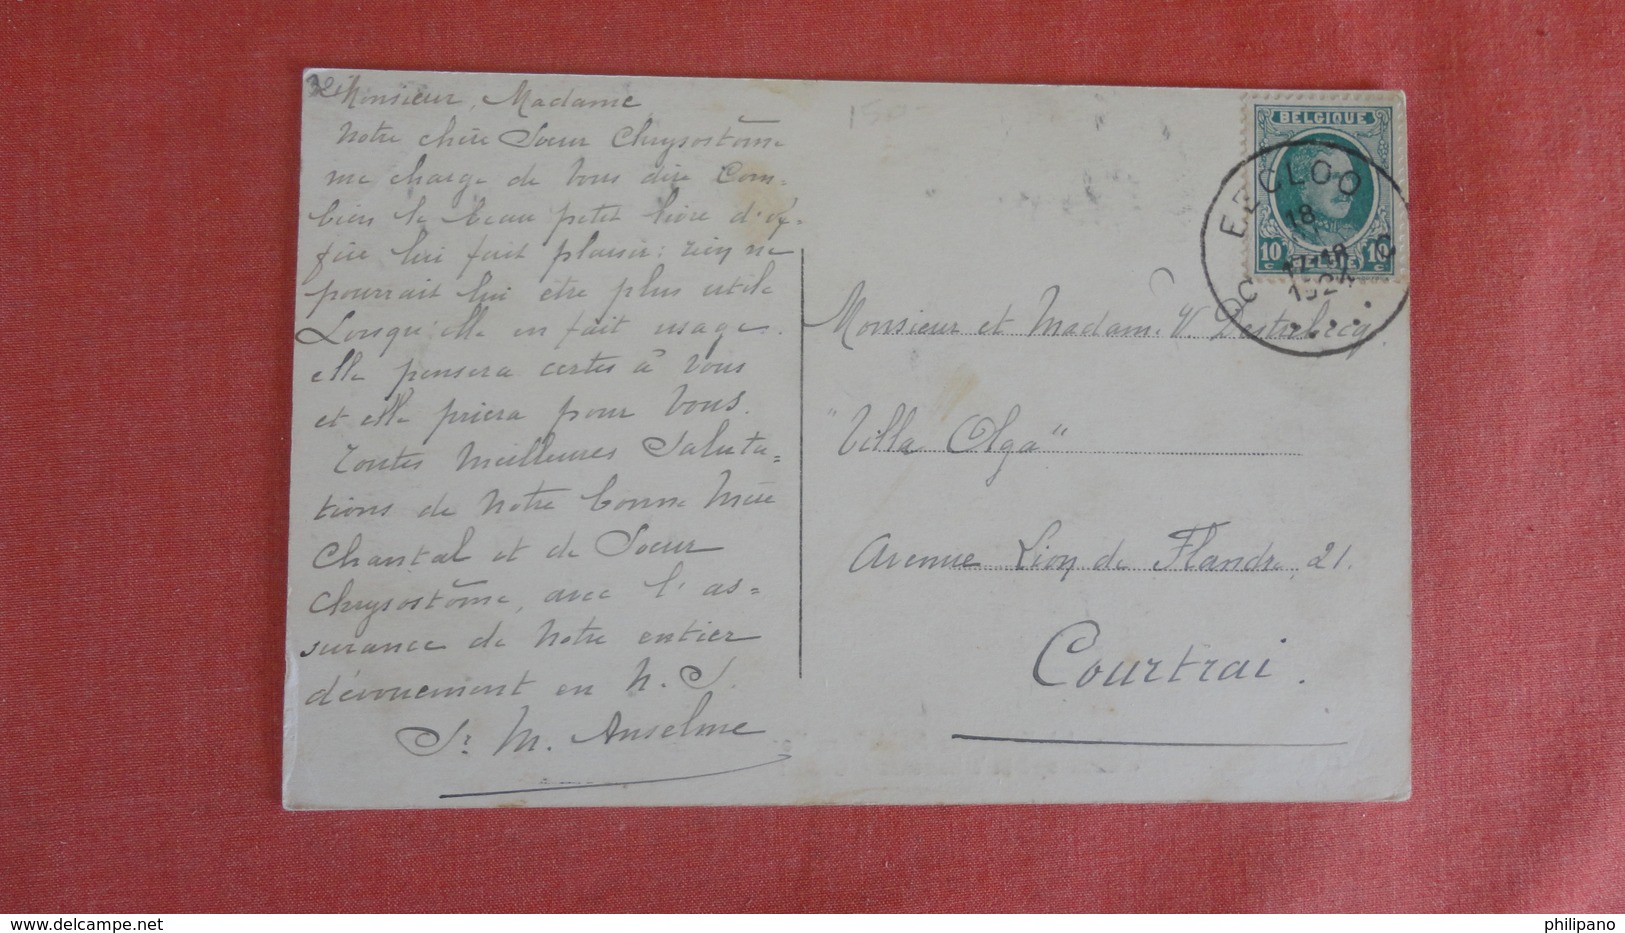 Monsieur, Madame
Notre chère Soeur Chrysostôme
me charge de Vous dire Com-
bien le beau petit livre d'of-
fice lui fait plaisir: rien ne
pourrait lui être plus utile
Lorsqu'elle en fait usage
elle pensera certes à Vous
et elle priera pour Vous.
Toutes Meilleures Saluta-
tions de Notre bonne Mère
Chantal et de Soeur
Chrysostôme, avec l'as-
surance de Notre entier
dévouement en N. S.
Sr M. Anselme
150-
BELGIQUE
10c BELGIE 10c
EECLOO
18
1
17-18
192
Monsieur et Madame V.
"Villa Olga"
Avenue Lion de Flandre, 21.
Courtrai.
philipano